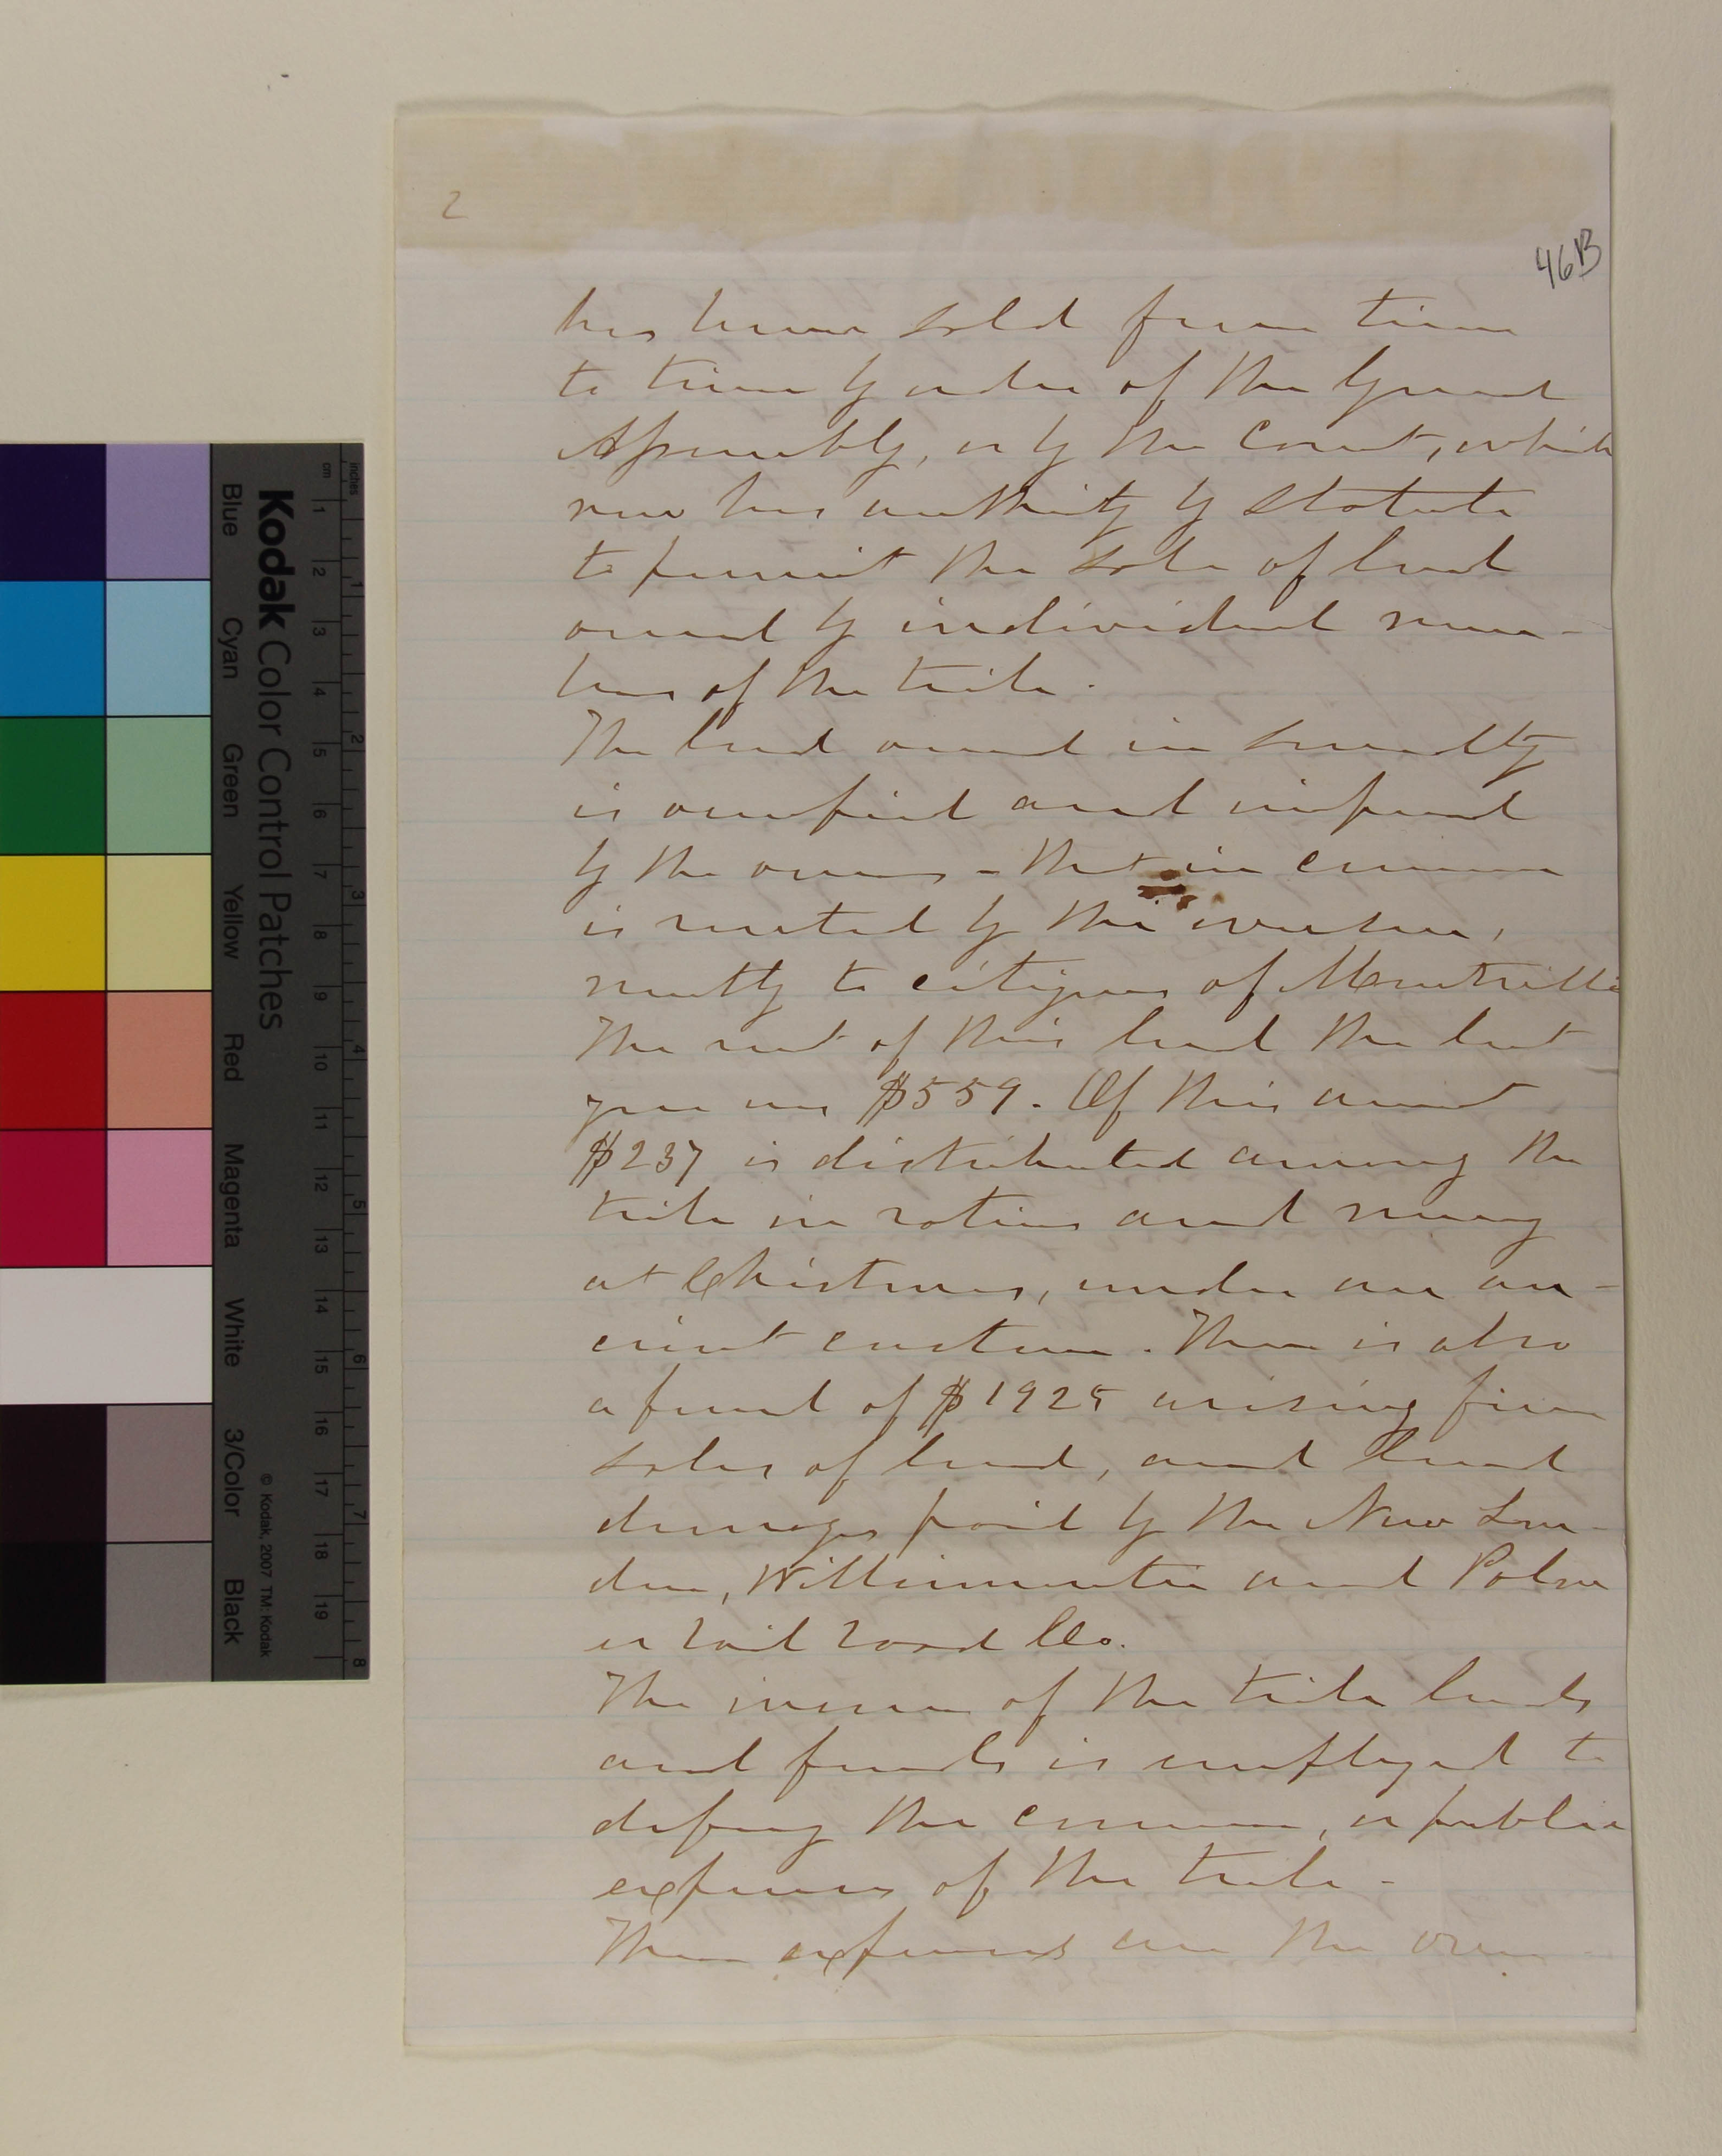 2
46B
has been sold from time
to time by order of the General
Assembly, or by the Court, which
now has authority by statute
to permit the sale of land
owned by individual mem-
bers of the tribe.
The land owned in severalty
is occupied and improved
by the owners - that in common
is rented by the overseer,
mostly to citizens of Montville
The rent of this land the last
year was $559. Of this amount
$237 is distributed among the
tribe in rations and money
at Christmas, under an an-
cient custom. There is also
a fund of $1925 arising from
sales of land, and land
damages paid by the New Lon-
don, Willimantic and Palm
er rail road Co.
The income of the tribe lands
and funds is employed to
defray the common, or public
expenses of the tribe -
These expenses are the over
Kodak Color Control Patches
Blue
Cyan
Green
Yellow
Red
Magenta
White
3/Color
Black
© Kodak, 2007 TM: Kodak
cm
1
2
3
4
5
6
7
8
9
10
11
12
13
14
15
16
17
18
19
inches
1
2
3
4
5
6
7
8